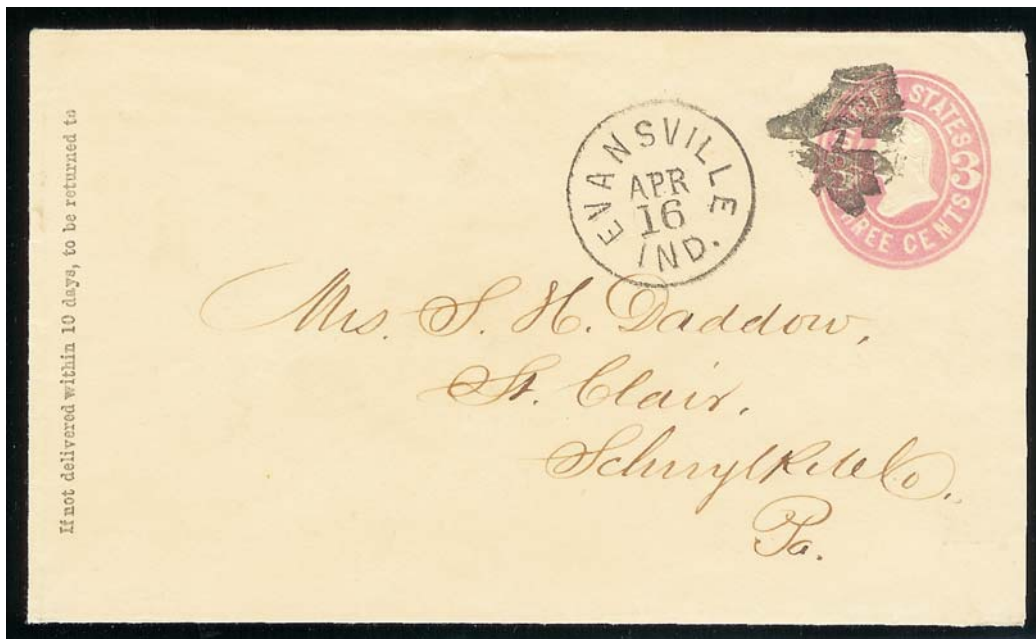 If not delivered within 10 days, to be returned to
EVANSVILLE
APR
16
IND.
STATES
3
THREE CENTS
Mrs. S. H. Daddow,
St. Clair,
Schuylkill Co.,
Pa.